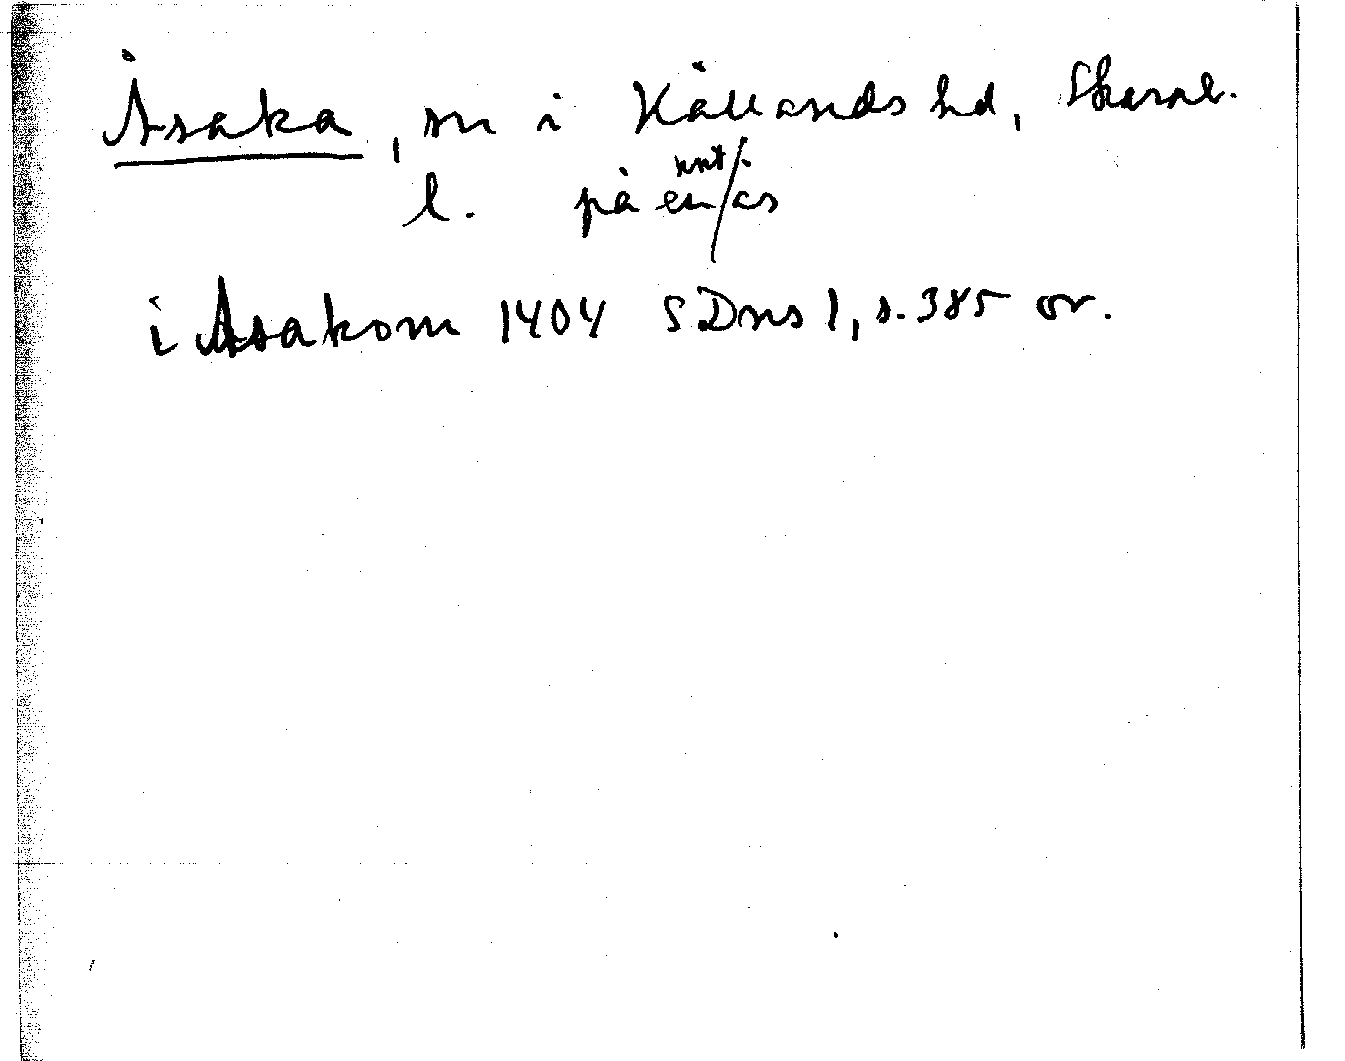 Åsaka, sn i Kållands hd, Skarab.
l. på en/as
i Asakom 1404 SDns 1, s. 385 or.